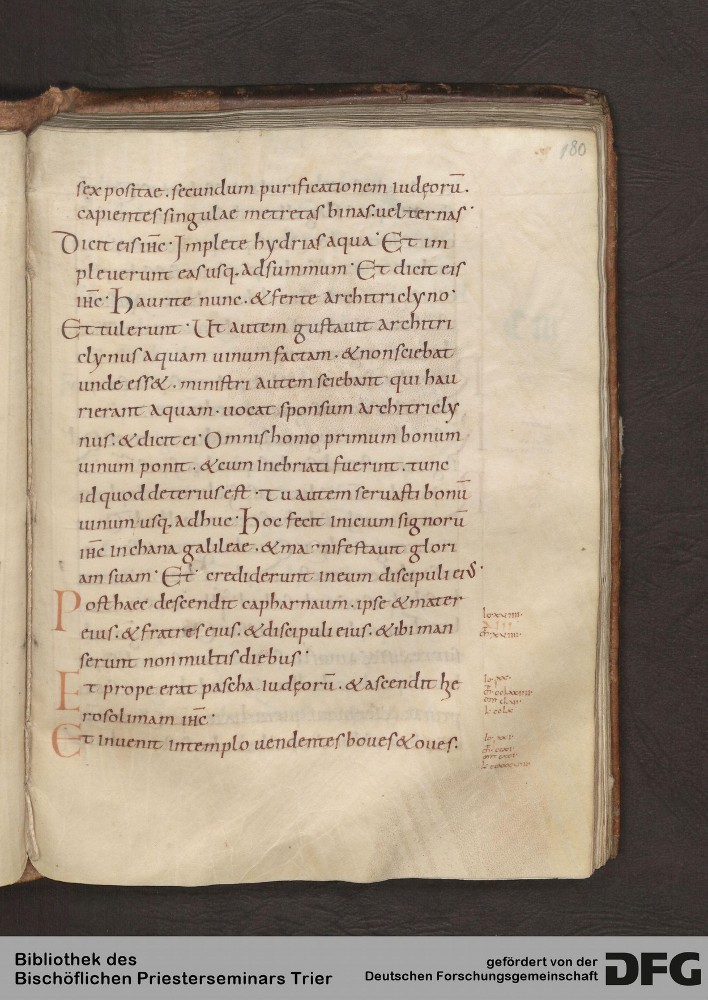 180
sex positae. secundum purificationem iudęorū.
capientes singulae metretas binas. uel ternas·
Dicit eis ihc̄· Implete hydrias aqua· Et im
pleuerunt eas usq. ad summum· Et dicit eis
ihc̄· Haurite nunc. & ferte architriclyno·
Et tulerunt· Ut autem gustauit architri
clynus aquam uinum factam. & non sciebat
unde ess&. ministri autem sciebant qui hau
rierant aquam. uocat sponsum architricly
nus. & dicit ei· Omnis homo primum bonum
uinum ponit. & cum inebriati fuerint. tunc
id quod deterius est· Tu autem seruasti bonū
uinum usq. adhuc· Hoc fecit inicium signorū
ihc̄ in chana galileae. & manifestauit glori
am suam· Et crediderunt in eum discipuli eius·
Post haec descendit capharnaum. ipse & mater
eius. & fratres eius. & discipuli eius. & ibi man
serunt non multis diebus·
Et prope erat pascha iudęorū. & ascendit hie
rosolimam ihc̄·
Et inuenit in templo uendentes boues & oues.
Bibliothek des
Bischöflichen Priesterseminars Trier
gefördert von der
Deutschen Forschungsgemeinschaft
DFG